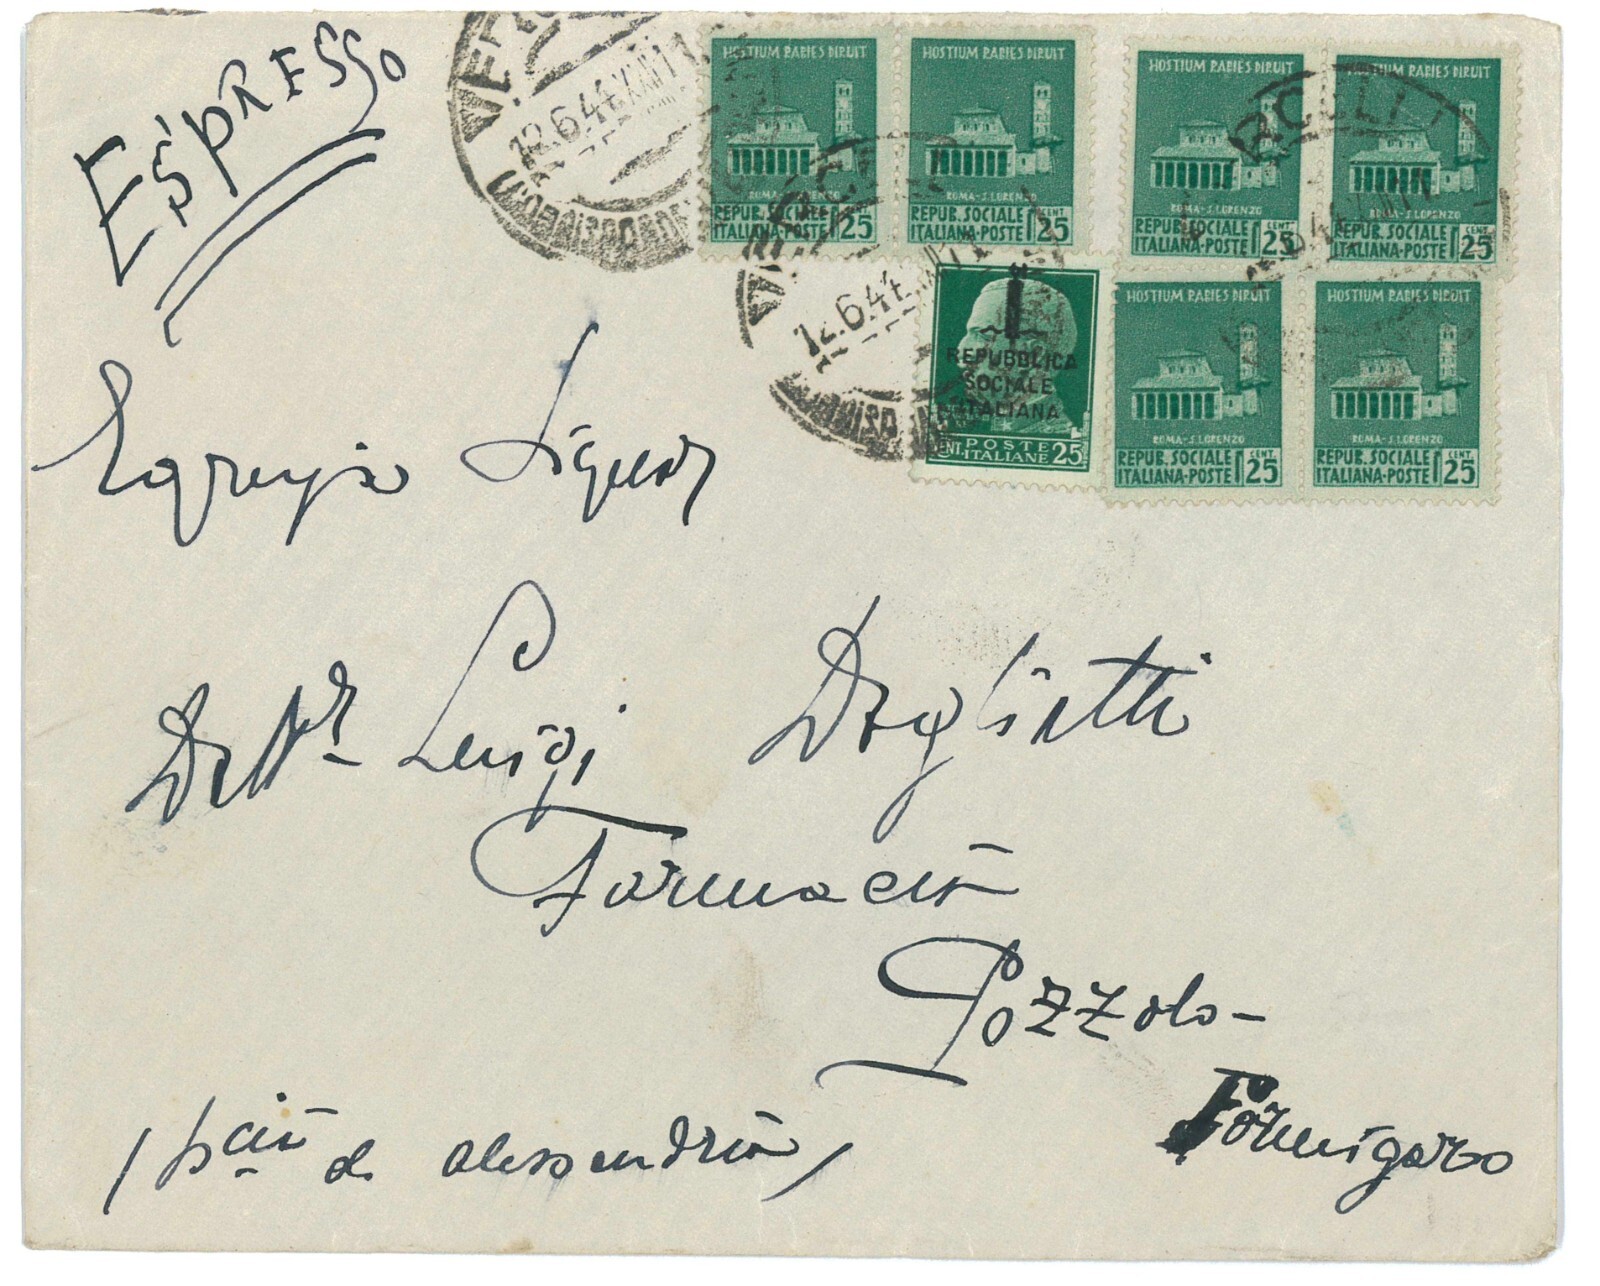 ESPRESSO
VERC
12.6.44.XXII
HOSTIUM RABIES DIRUIT
ROMA-S.LORENZO
REPUB.SOCIALE
ITALIANA-POSTE
CENT.
25
HOSTIUM RABIES DIRUIT
ROMA-S.LORENZO
REPUB.SOCIALE
ITALIANA-POSTE
CENT.
25
HOSTIUM RABIES DIRUIT
ROMA-S.LORENZO
REPUB.SOCIALE
ITALIANA-POSTE
25
HOSTIUM RABIES DIRUIT
ROMA-S.LORENZO
REPUB.SOCIALE
ITALIANA-POSTE
CENT.
25
RCELLI
12.6.44.
REPUBBLICA
SOCIALE
ITALIANA
POSTE
CENT. ITALIANE 25
HOSTIUM RABIES DIRUIT
ROMA-S.LORENZO
REPUB.SOCIALE
ITALIANA-POSTE
CENT.
25
HOSTIUM RABIES DIRUIT
ROMA-S.LORENZO
REPUB.SOCIALE
ITALIANA-POSTE
CENT.
25
Egregio Signor
Dottr Luigi Doglietti
Farmacia
Pozzolo-
Formigaro
(pcia di Alessandria)